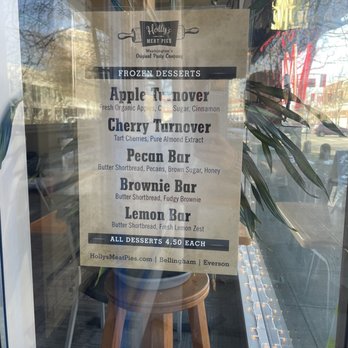 Holly's
MEAT PIES
Washington's
Original Pasty Company
FROZEN DESSERTS
Apple Turnover
Fresh Organic Apples, Cane Sugar, Cinnamon
Cherry Turnover
Tart Cherries, Pure Almond Extract
Pecan Bar
Butter Shortbread, Pecans, Brown Sugar, Honey
Brownie Bar
Butter Shortbread, Fudgy Brownie
Lemon Bar
Butter Shortbread, Fresh Lemon Zest
ALL DESSERTS 4.50 EACH
HollysMeatPies.com | Bellingham | Everson